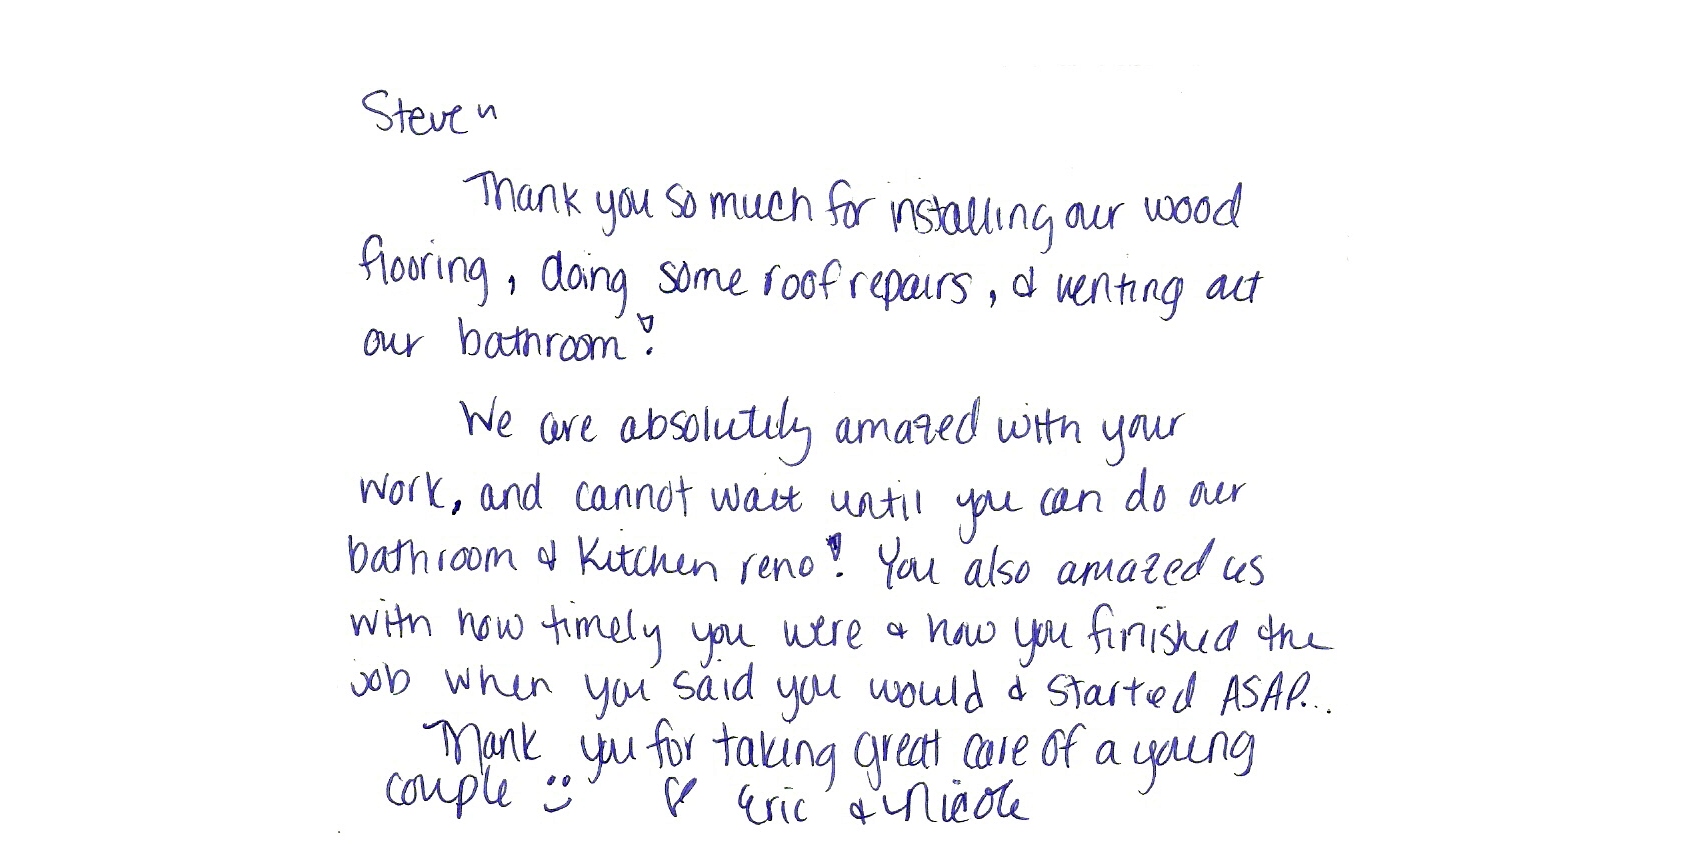 Steven
Thank you so much for installing our wood
flooring, doing some roof repairs, & venting out
our bathroom!
We are absolutely amazed with your
work, and cannot wait until you can do our
bathroom & kitchen reno! You also amazed us
with how timely you were & how you finished the
job when you said you would & started ASAP...
Thank you for taking great care of a young
couple :) ♡ Eric & Nicole